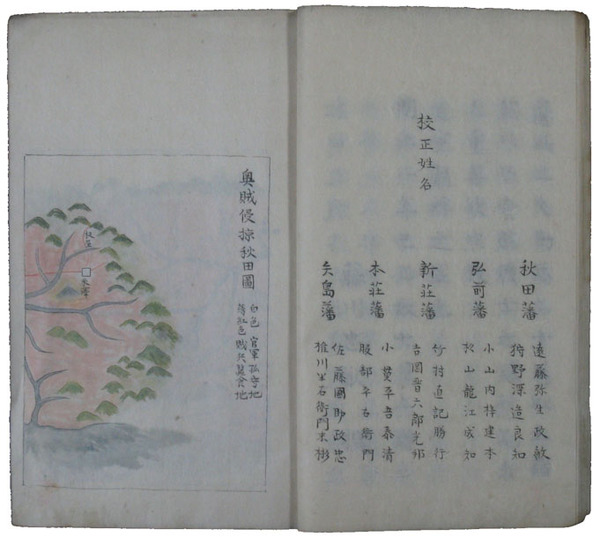 校正姓名
秋田藩
遠藤弥生政敏
狩野深造良知
弘前藩
小山内梓建本
松山龍江成知
新荘藩
竹村直記勝行
吉岡晋六郎光邦
本荘藩
小菅平吾泰清
服部平右衛門
矢島藩
佐藤國助政忠
椎川半右衛門末彬
奥賊侵掠秋田圖
白色 官軍孤守地
薄紅色 賊兵蚕食地